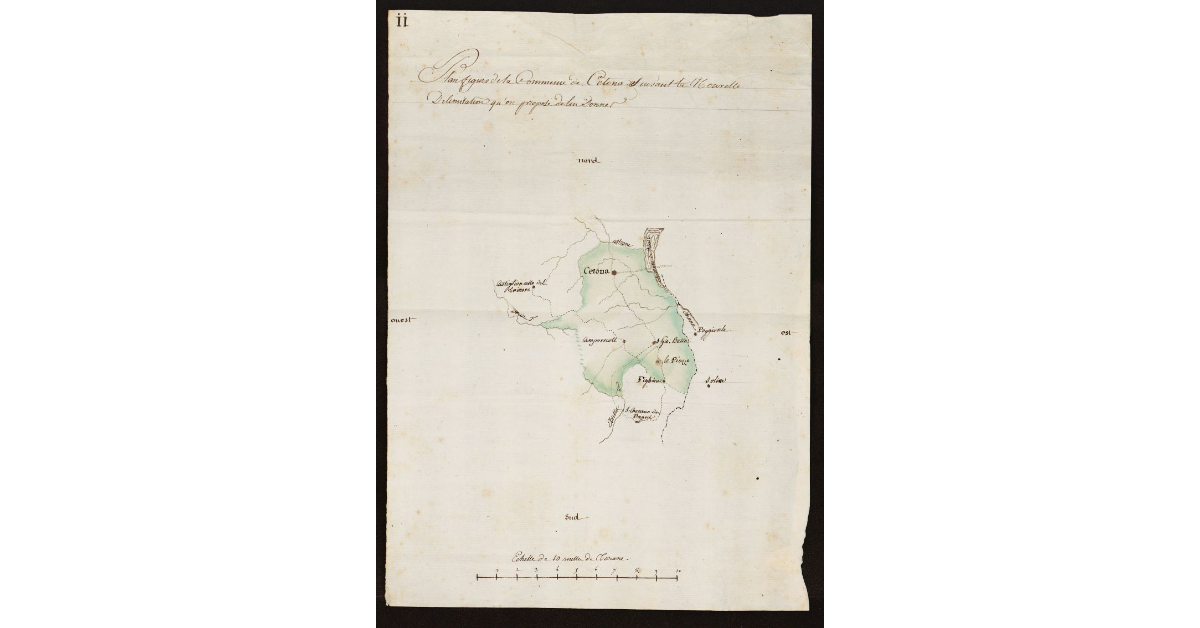 ii
Plan figuré de la Commune de Cetona Suivant la Nouvelle
Delimitation qu'on propose de lui Donner
nord
Astrone
Cetona
Castiglioncello del
ouest
est
Poggiovalle
Camporsevoli
le Piazze
Fighine
S. Casciano dei
Bagni
Sud
Echelle de 10 milles de Toscane
1 2 3 4 5 6 7 8 9 10